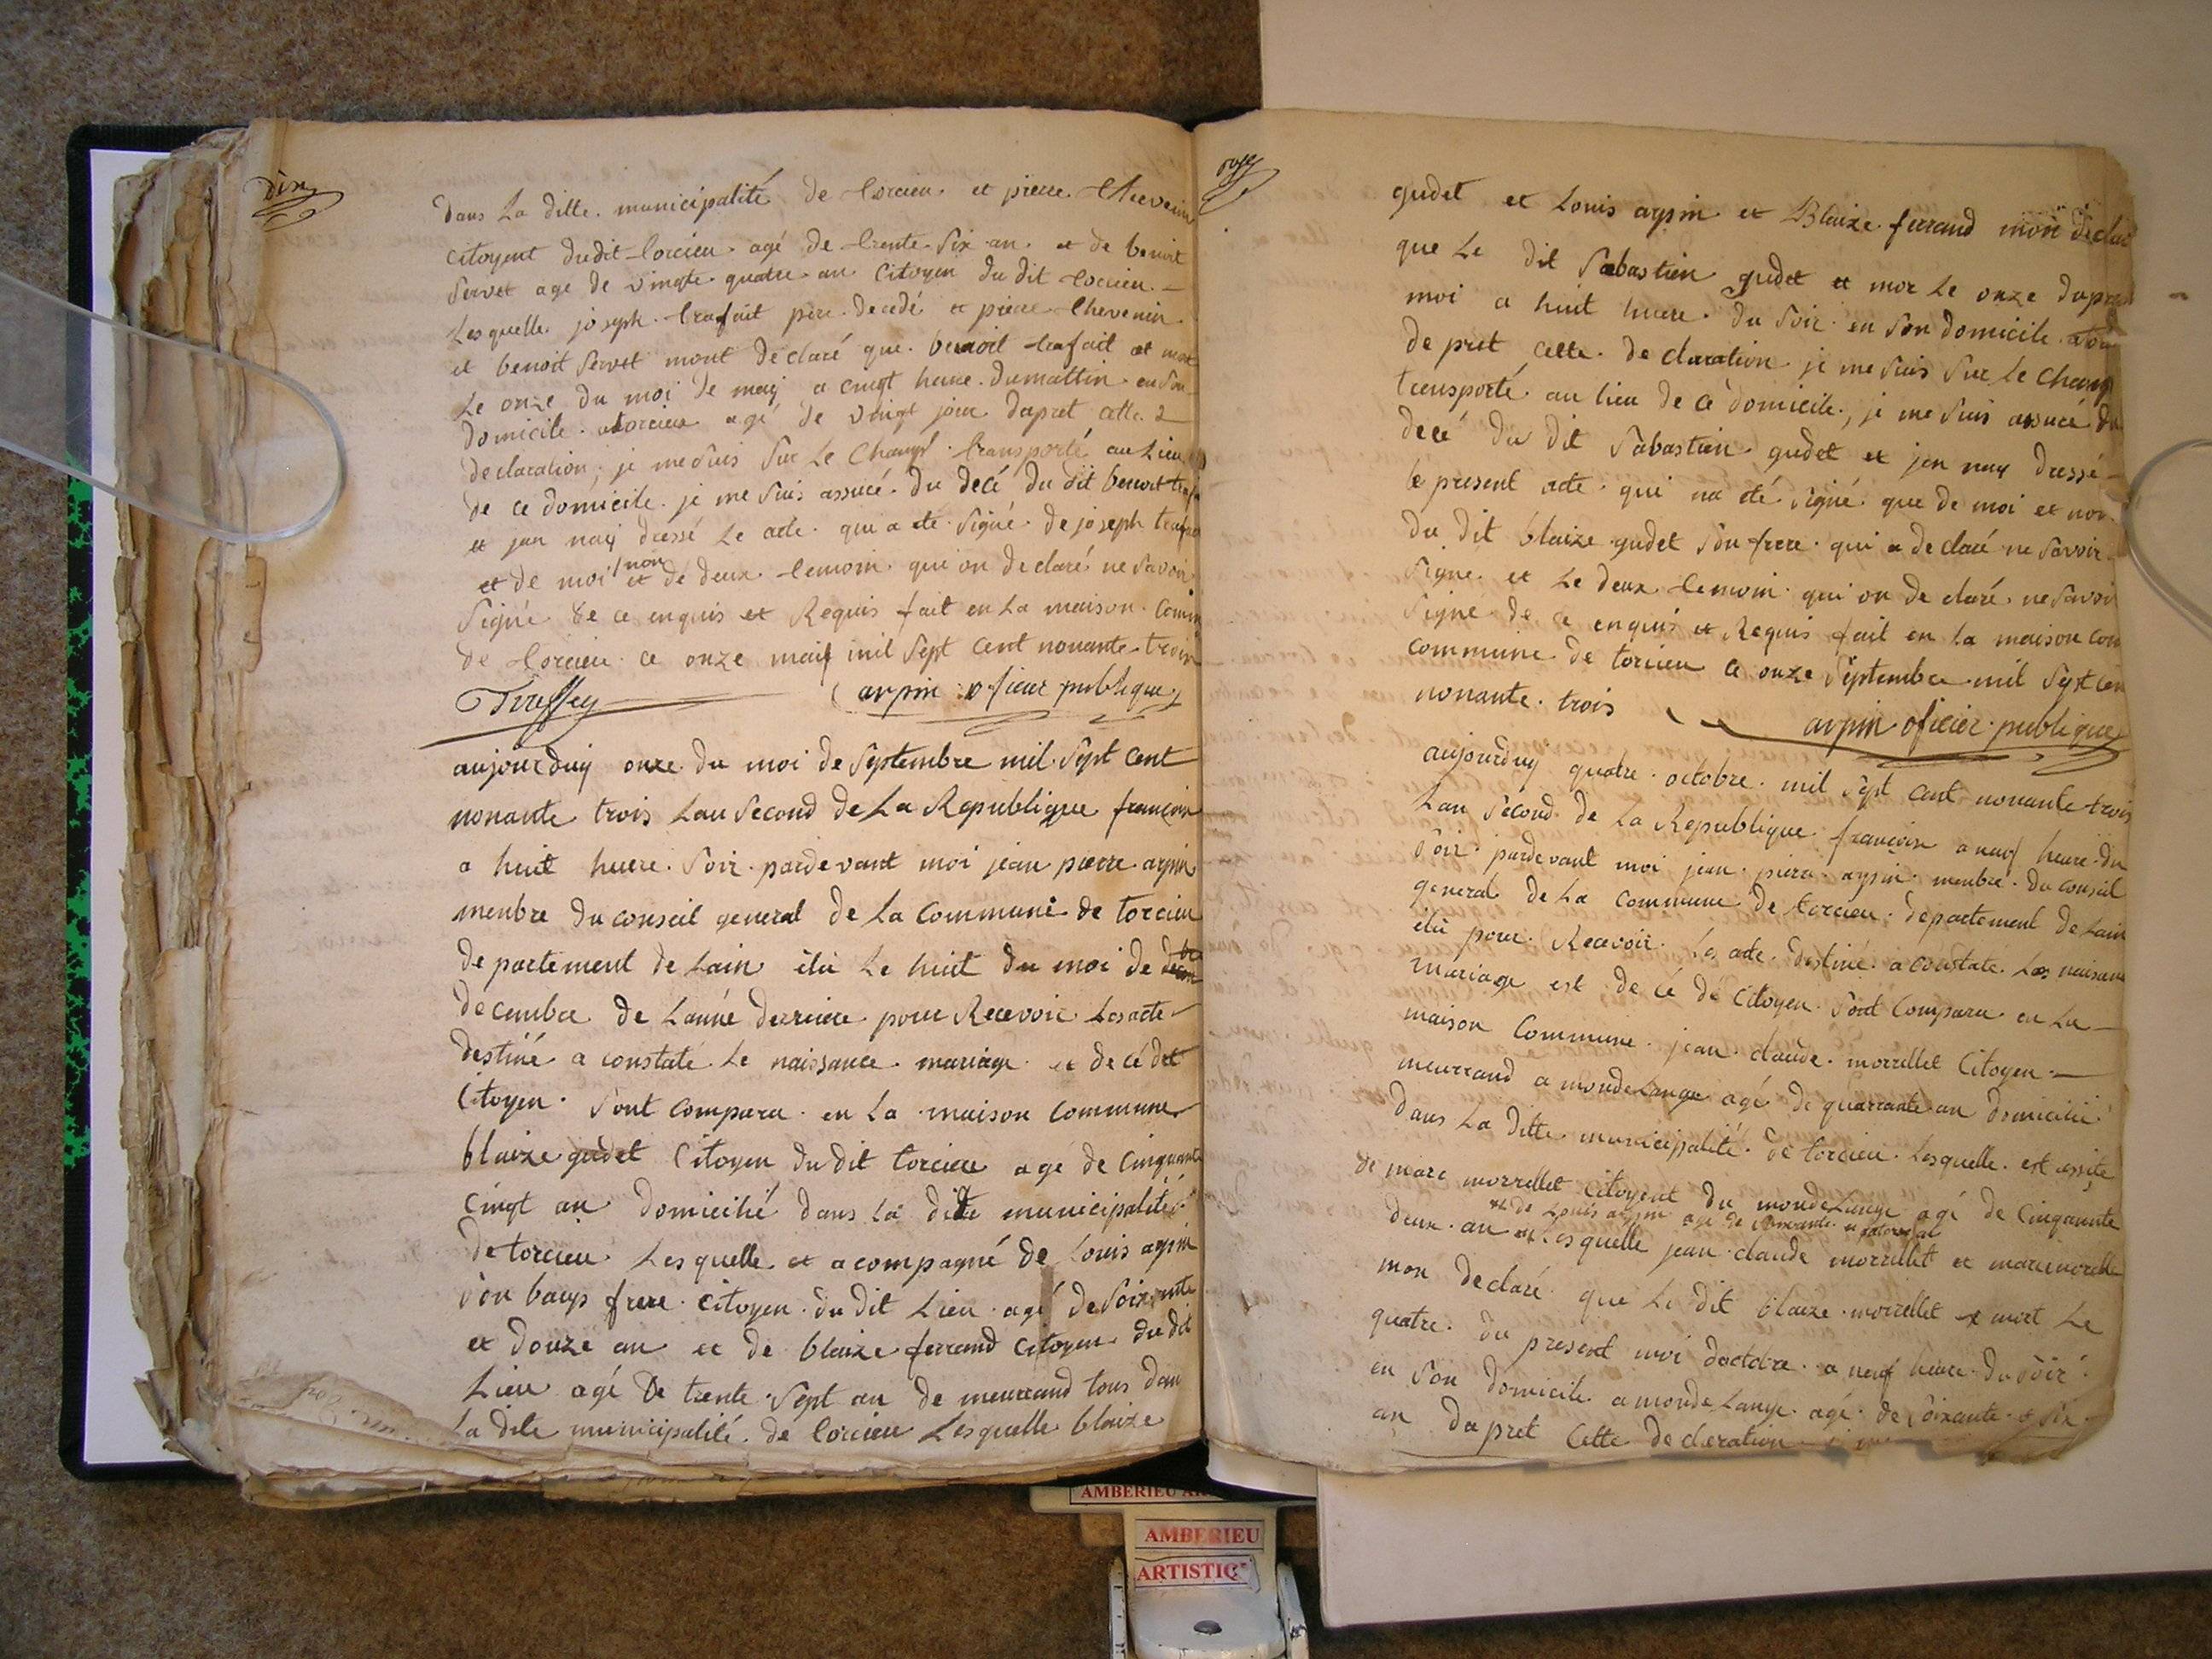 dix
dans La ditte municipalité de torcieu et pierre Chevenin
Citoyent dudit torcieu agé de trente six an et de benoit
Servet age de vingte quatre an Citoyen du dit torcieu
Lesquelle joseph trafait pere decedé et pierre Chevenin
et benoit Servet mont declaré que benoit trafait et mor
Le onze du moi de maÿ a cinqt heure dumattin en Son
domicile a torcieu agé de vingt jour dapret cette
declaration, je mesuis Sur Le Champt transporté au Lieu
de ce domicile je me suis assuré du decé du dit benoit
et jan naÿ dressé Le acte qui a ete Signé de joseph
et de moi et non de deux temoin qui on declaré ne Savoir
Signé de ce enquis et Requis fait en La maison Comm
de torcieu ce onze maÿ mil Sept Cent nonante trois
arpin oficier publique
aujourduÿ onze du moi de Septembre mil Sept Cent
nonante trois Lan Second de La Republique francoise
a huit heure Soir pardevant moi jean pierre arpin
menbre du conseil general de La Commune de torcieu
departement de Lain élu Le huit du moi de
decembre de Lanné derniere pour Recevoir Les acte
destiné a constaté Le naissance mariage et de cé det
Citoyen Sont Comparu en La maison Commune
blaize gudet Citoyen du dit torcieu agé de Cinquante
Cinqt an domicilié dans La dite municipalité
de torcieu Lesquelle et acompagné de Louis arpin
Son baup frere Citoyen du dit Lieu agé de Soixante
et douze an et de blaize ferrand Citoyen du dit
Lieu agé de trente Sept an de meurrand tous dan
La dite municipalité de torcieu Lesquelle blaize
onze
gudet et Louis arpin et Blaize ferrand mon declar
que Le dit Sabastien gudet et mor Le onze du present
moi a huit heure du Soir en Son domicile
de pret cette declaration je me suis Sur Le Champ
transporté au lieu de ce domicile, je me suis assuré du
decé du dit Sabastien gudet et jen naÿ dressé
le present acte qui na eté signé que de moi et non
du dit blaize gudet Son frere qui a declaré ne Savoir
Signe et Le deux temoin qui on declaré ne Savoir
Signe de ce enquis et Requis fait en La maison com
commune de torcieu ce onze Septembre mil Sept Cen
nonante trois
arpin oficier publique
aujourduÿ quatre octobre mil Sept Cent nonante trois
Lan Second de La Republique francoise a neuf heure du
Soir pardevant moi jean piere arpin menbre du conseil
general de La Commune de torcieu departement de Lain
élu pour Recevoir Les acte destiné a constate Les naissance
mariage est de cé de Citoyen Sont Comparu en La
maison Commune jean claude morrellet Citoyen
meurrand a monde Lange agé de quarrante an domicilié
dans La ditte municipalité de torcieu Lesquelle est assiste
de marc morrellet Citoyent du monde Lange agé de Cinquante
et de Louis arpin agé de
deux an Lesquelle jean claude morrellet et marc morelle
mon declaré que Le dit blaize morrellet et mort Le
quatre du present moi doctobre a neuf heure du Soir
en Son domicile a monde Lange agé de Soixante Six
an dapret Cette declaration
AMBERIEU
AMBERIEU
ARTISTIQ